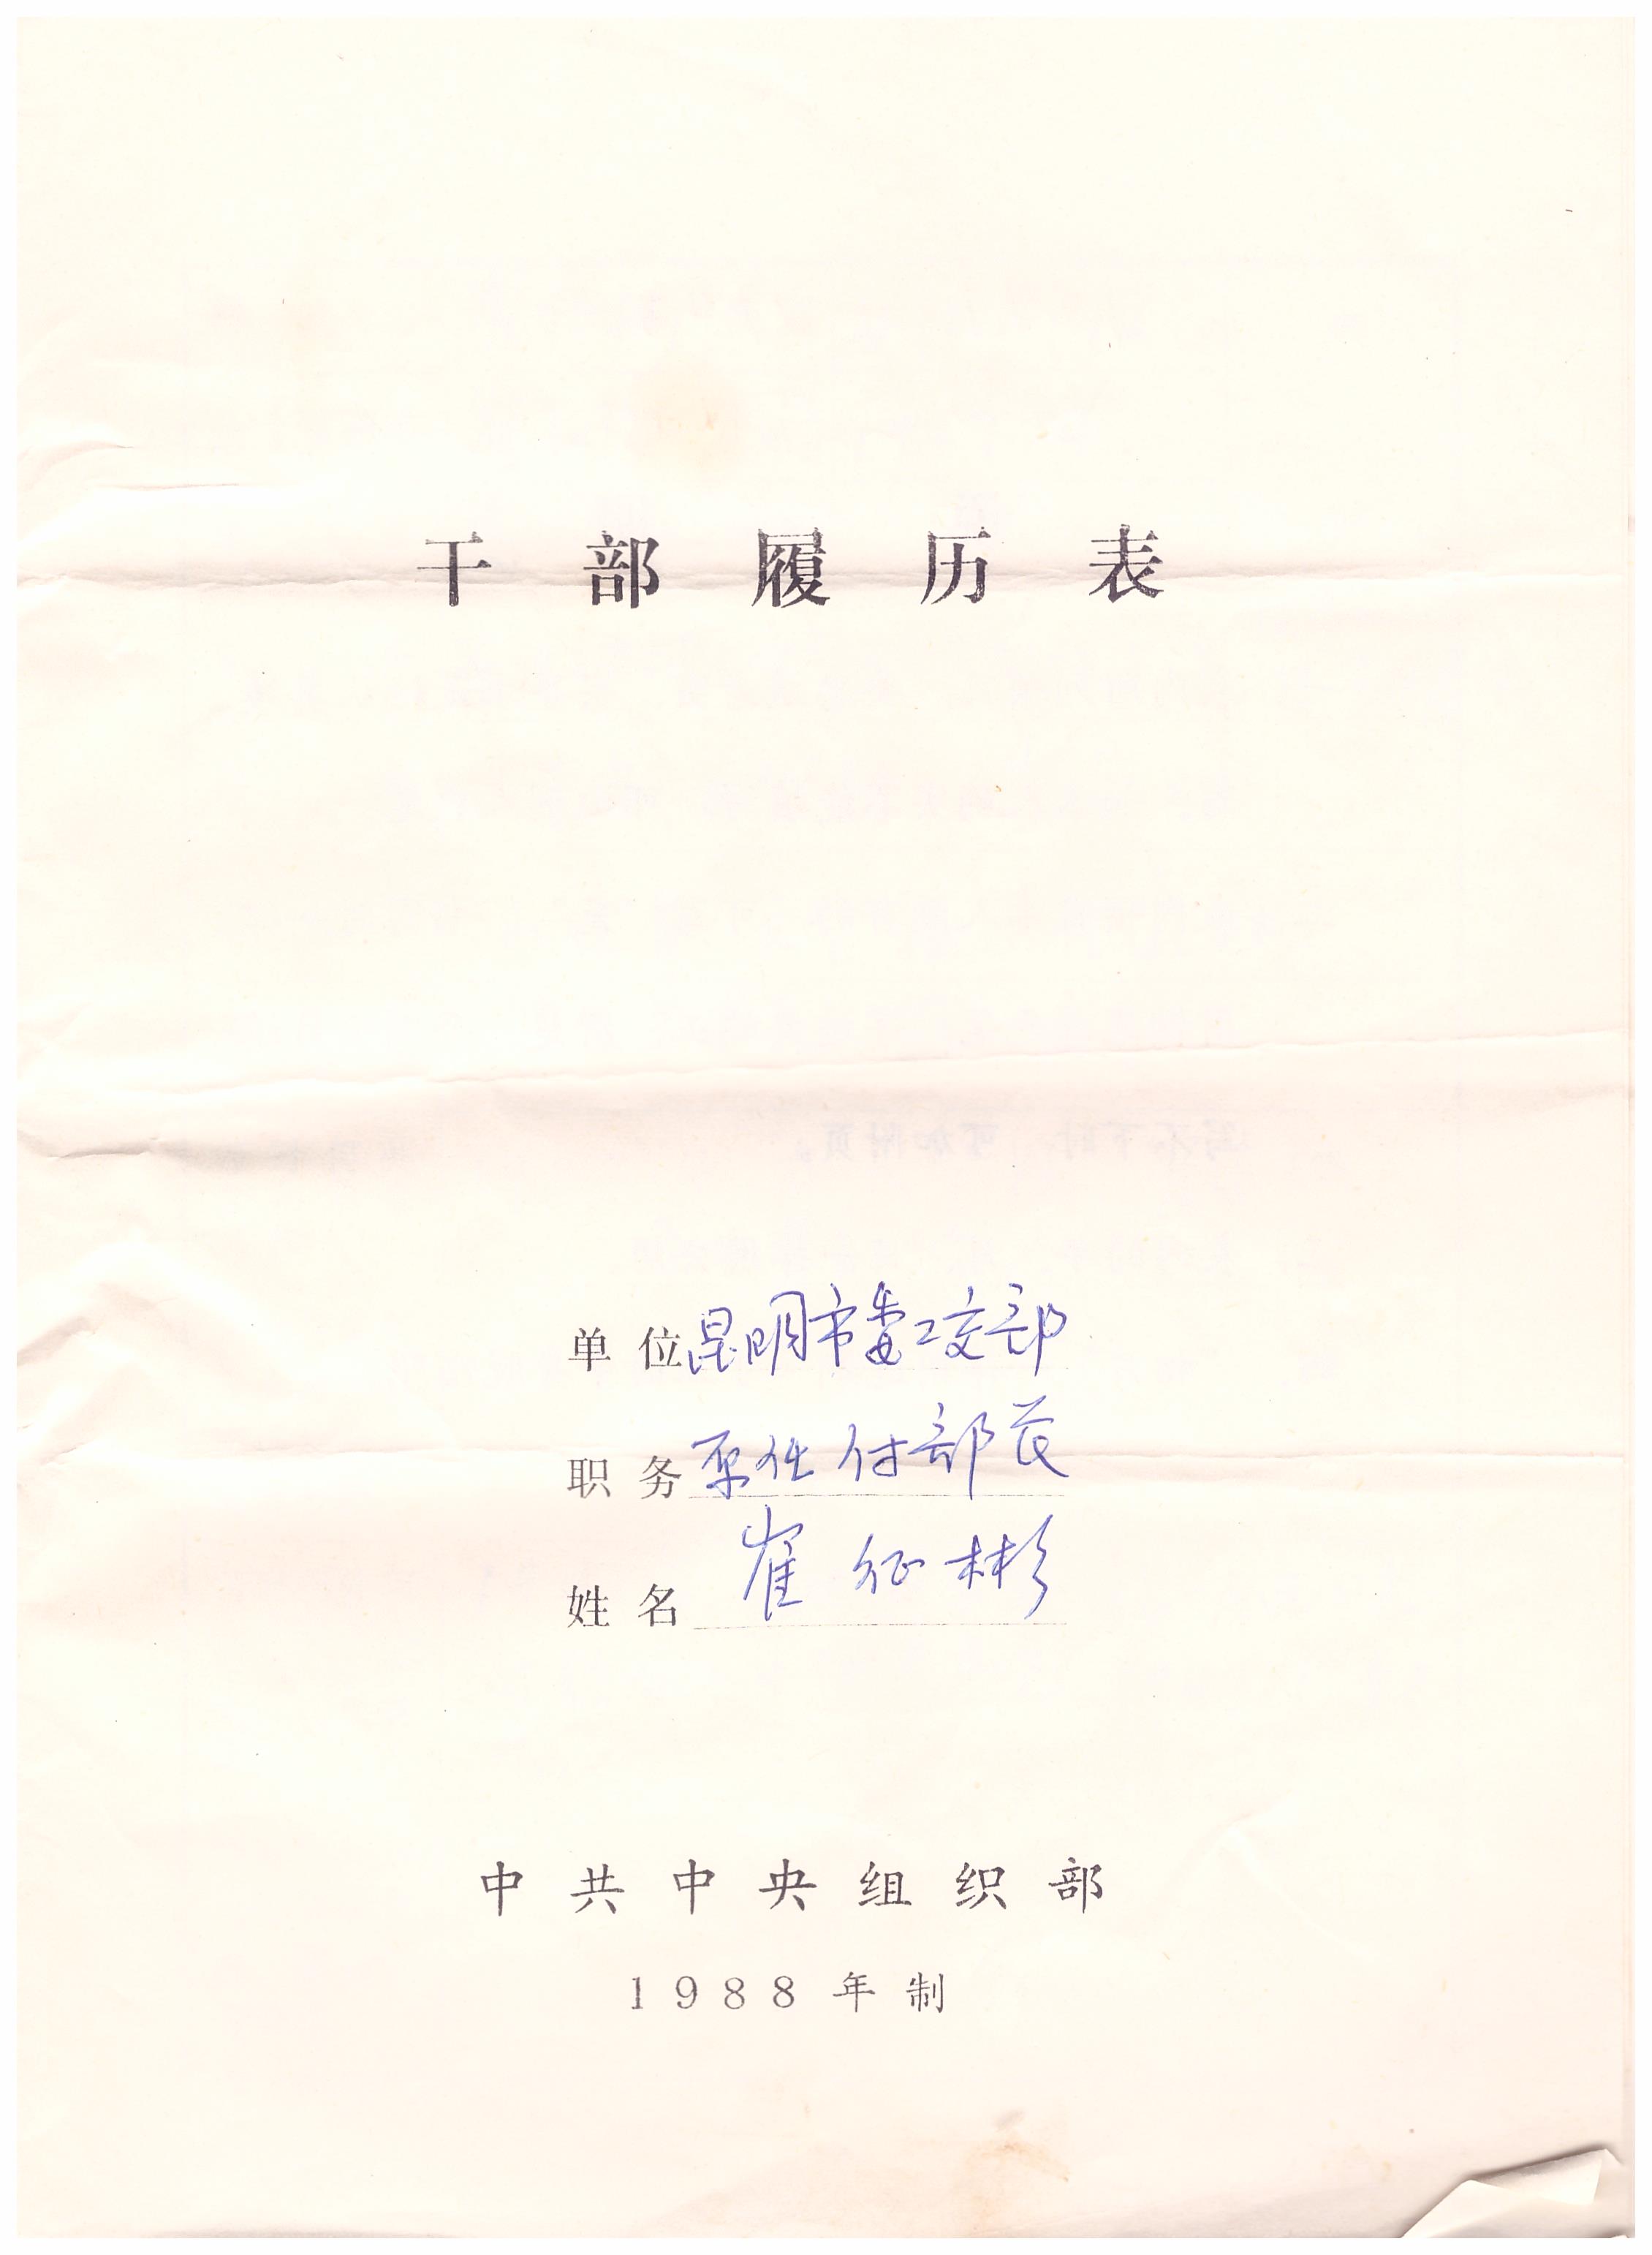 干部履历表
单位昆明市委工交部
职务原任付部长
姓名崔征彬
中共中央组织部
1988年制